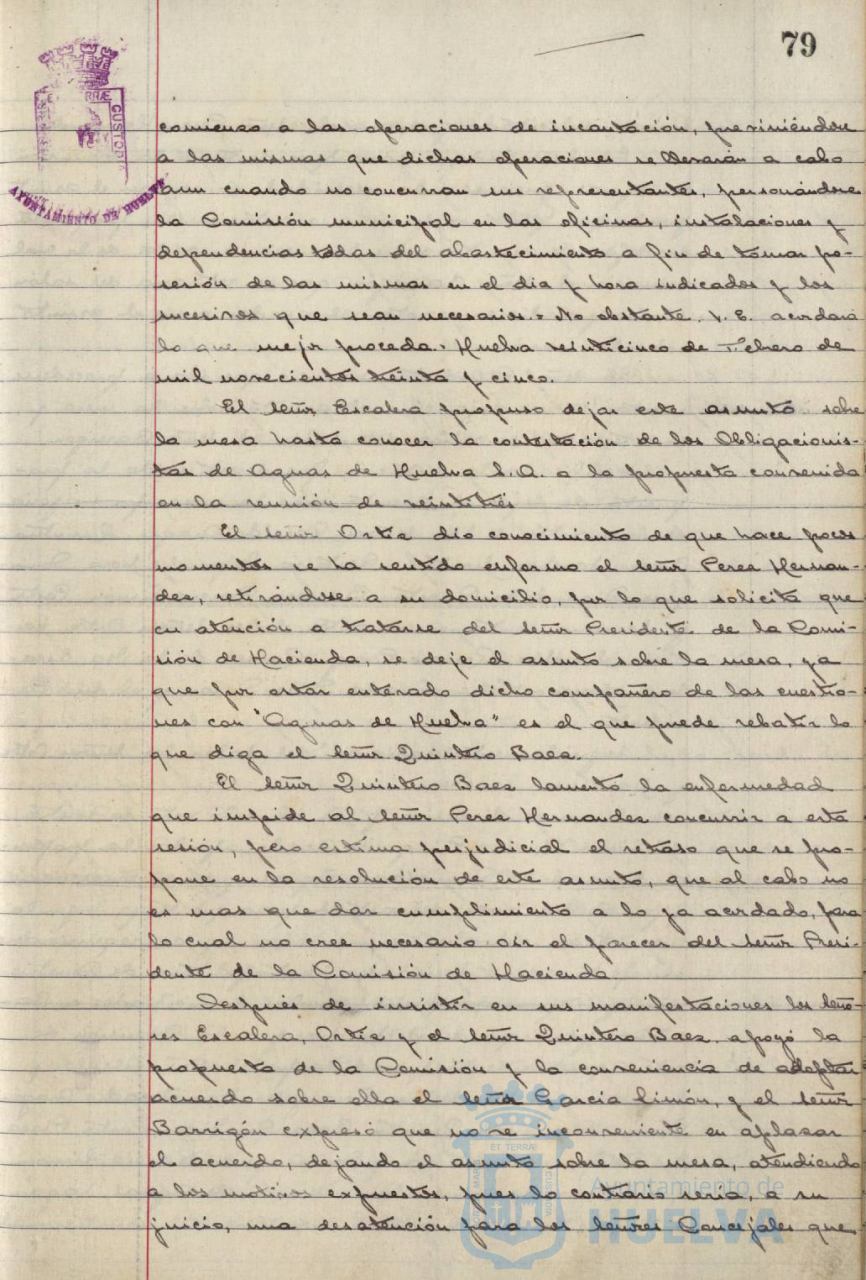 79
comienzo a las operaciones de incautación, previniéndose
a las mismas que dichas operaciones se llevarán a cabo
aun cuando no concurran sus representantes, personándose
la Comisión municipal en las oficinas, instalaciones y
dependencias todas del abastecimiento a fin de tomar po-
sesión de las mismas en el dia y hora indicados y los
sucesivos que sean necesarios.= No obstante V. E. acordará
lo que mejor proceda. Huelva veinticinco de Febrero de
mil novecientos treinta y cinco.
El señor Escalera propuso dejar este asunto sobre
la mesa hasta conocer la contestación de los Obligacionis-
tas de Aguas de Huelva S.A. a la propuesta convenida
en la reunión de veintitrés
El señor Ortiz dio conocimiento de que hace pocos
momentos se ha sentido enfermo el señor Perez Hernan-
dez, retirándose a su domicilio, por lo que solicita que
en atención a tratarse del señor Presidente de la Comi-
sión de Hacienda, se deje el asunto sobre la mesa, ya
que por estar enterado dicho compañero de las cuestio-
nes con "Aguas de Huelva" es el que puede rebatir lo
que diga el señor Quintero Baez.
El señor Quintero Baez lamentó la enfermedad
que impide al señor Perez Hernandez concurrir a esta
sesión, pero estima perjudicial el retraso que se pro-
pone en la resolución de este asunto, que al cabo no
es mas que dar cumplimiento a lo ya acordado, para
lo cual no cree necesario oir el parecer del señor Presi-
dente de la Comisión de Hacienda
Después de insistir en sus manifestaciones los seño-
res Escalera, Ortiz y el señor Quintero Baez, apoyó la
propuesta de la Comisión y la conveniencia de adoptar
acuerdo sobre ella el señor García Limón, y el señor
Barrigón expresó que no ve inconveniente en aplazar
el acuerdo, dejando el asunto sobre la mesa, atendiendo
a los motivos expuestos, pues lo contrario sería, a su
juicio, una desatención para los señores Concejales que
CUSTODIA
AYUNTAMIENTO DE HUELVA
ET TERRÆ
Ayuntamiento de
HUELVA